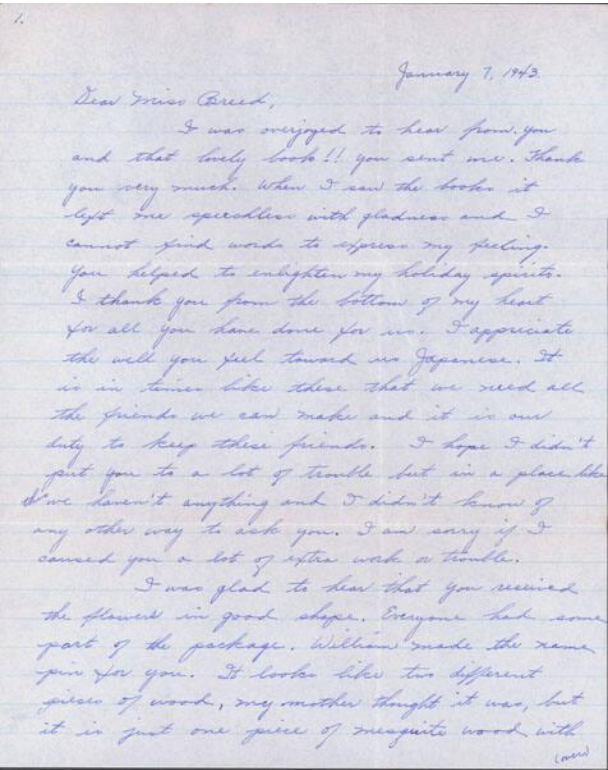 1.
January 7, 1943.
Dear Miss Breed,
I was overjoyed to hear from you
and that lovely book!! you sent me. Thank
you very much. When I saw the books it
left me speechless with gladness and I
cannot find words to express my feeling.
You helped to enlighten my holiday spirits.
I thank you from the bottom of my heart
for all you have done for us. I appreciate
the well you feel toward us Japanese. It
is in times like these that we need all
the friends we can make and it is our
duty to keep these friends. I hope I didn't
put you to a lot of trouble but in a place like
we haven't anything and I didn't know of
any other way to ask you. I am sorry if I
caused you a lot of extra work or trouble.
I was glad to hear that you received
the flowers in good shape. Everyone had some
part of the package. William made the name
pin for you. It looks like two different
pieces of wood, my mother thought it was, but
it is just one piece of mesquite wood with
(over)